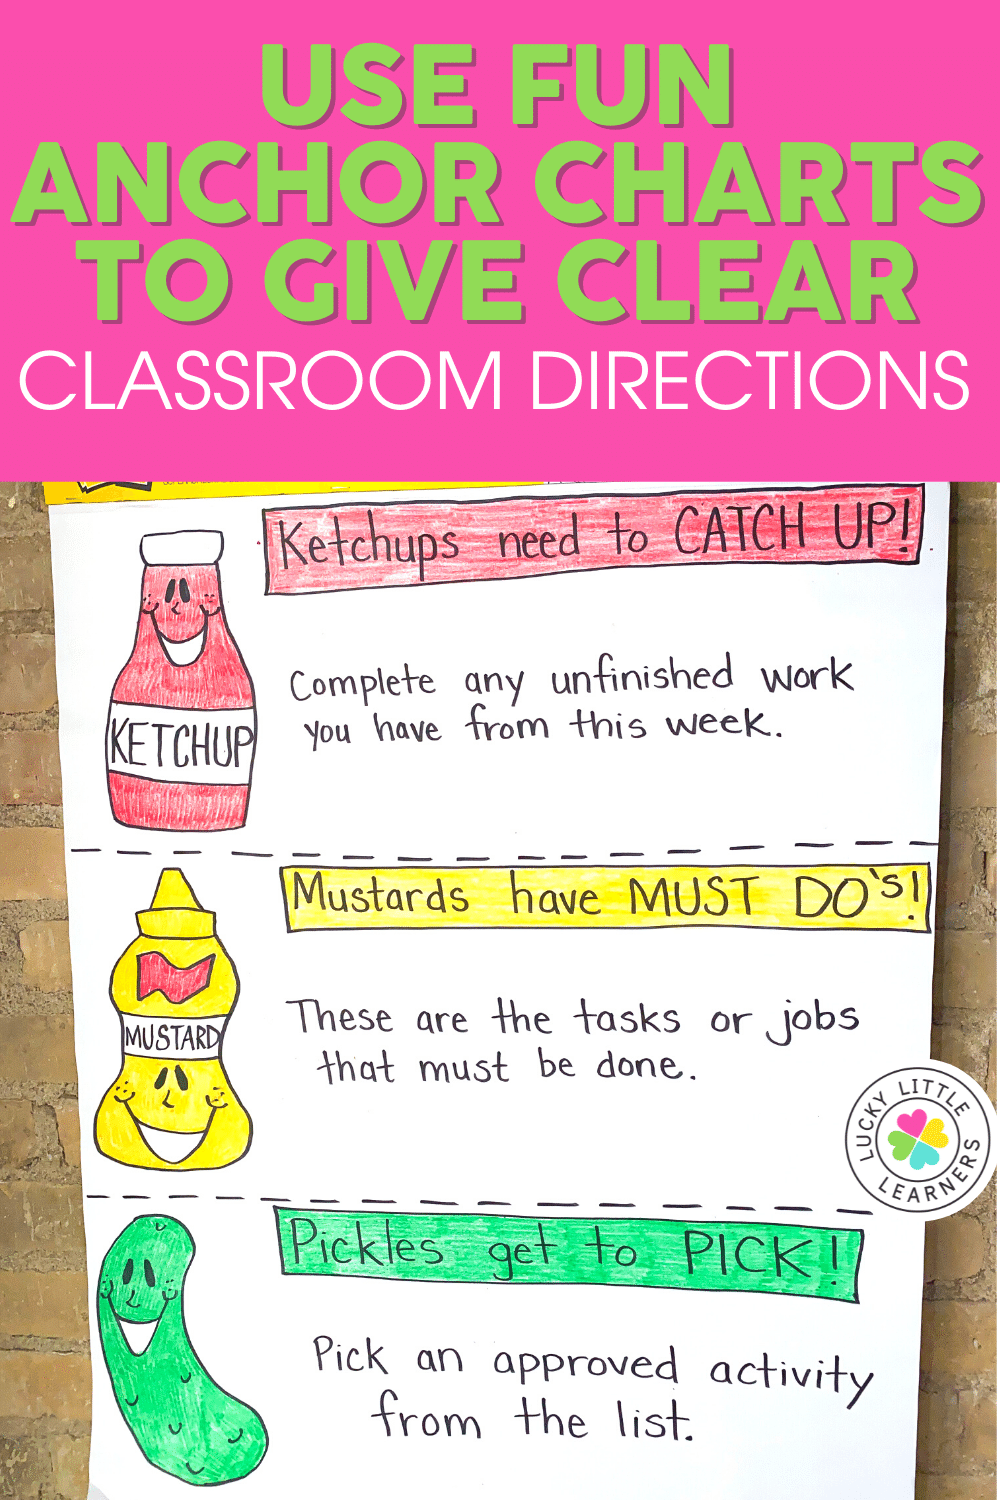 USE FUN
ANCHOR CHARTS
TO GIVE CLEAR
CLASSROOM DIRECTIONS
Ketchups need to CATCH UP!
Complete any unfinished work
you have from this week.
KETCHUP
Mustards have MUST DO's!
These are the tasks or jobs
that must be done.
MUSTARD
LUCKY LITTLE
LEARNERS
Pickles get to PICK!
Pick an approved activity
from the list.